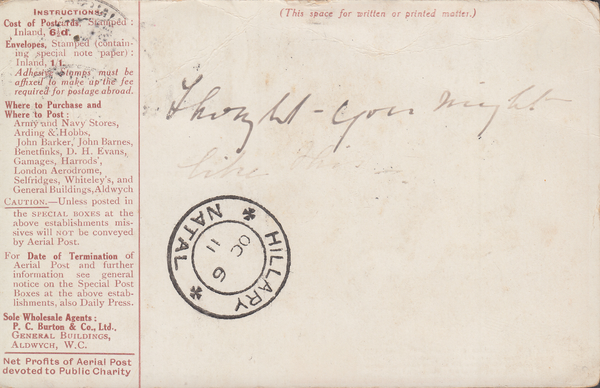 INSTRUCTIONS.
Cost of Postcards, Stamped:
Inland, 6½d.
Envelopes, Stamped (contain-
ing special note paper):
Inland, 1/1.
Adhesive Stamps must be
affixed to make up the fee
required for postage abroad.
Where to Purchase and
Where to Post:
Army and Navy Stores,
Arding & Hobbs,
John Barker, John Barnes,
Benetfinks, D. H. Evans,
Gamages, Harrods',
London Aerodrome,
Selfridges, Whiteley's, and
General Buildings, Aldwych
CAUTION.—Unless posted in
the SPECIAL BOXES at the
above establishments mis-
sives will NOT be conveyed
by Aerial Post.
For Date of Termination of
Aerial Post and further
information see general
notice on the Special Post
Boxes at the above estab-
lishments, also Daily Press.
Sole Wholesale Agents:
P. C. Burton & Co., Ltd.,
GENERAL BUILDINGS,
ALDWYCH, W.C.
Net Profits of Aerial Post
devoted to Public Charity
(This space for written or printed matter.)
Thought - you might
like this
HILLARY
NATAL
OC 6
11